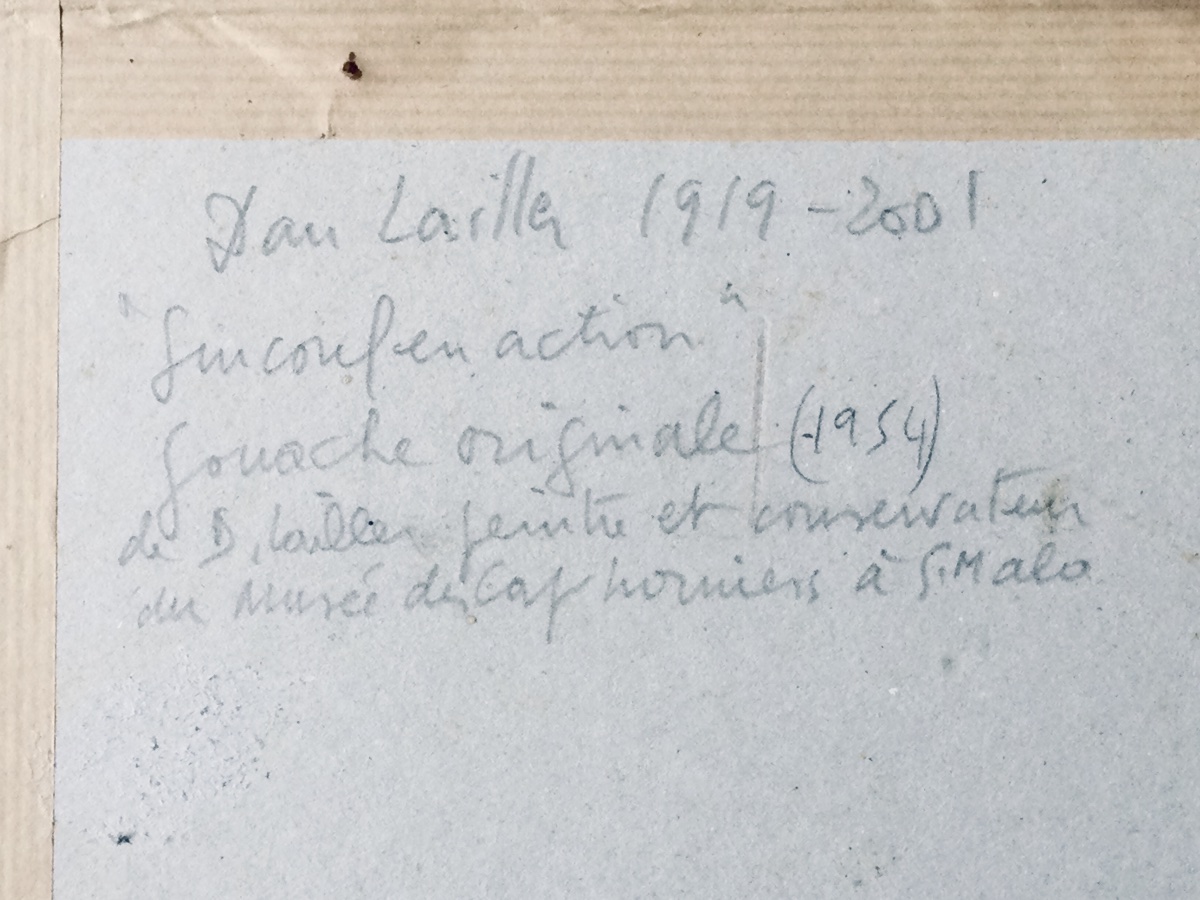 Dan Lailler 1919-2001
"Surcouf en action"
Gouache originale (1954)
de D. Lailler peintre et conservateur
du Musée des Cap horniers à St Malo